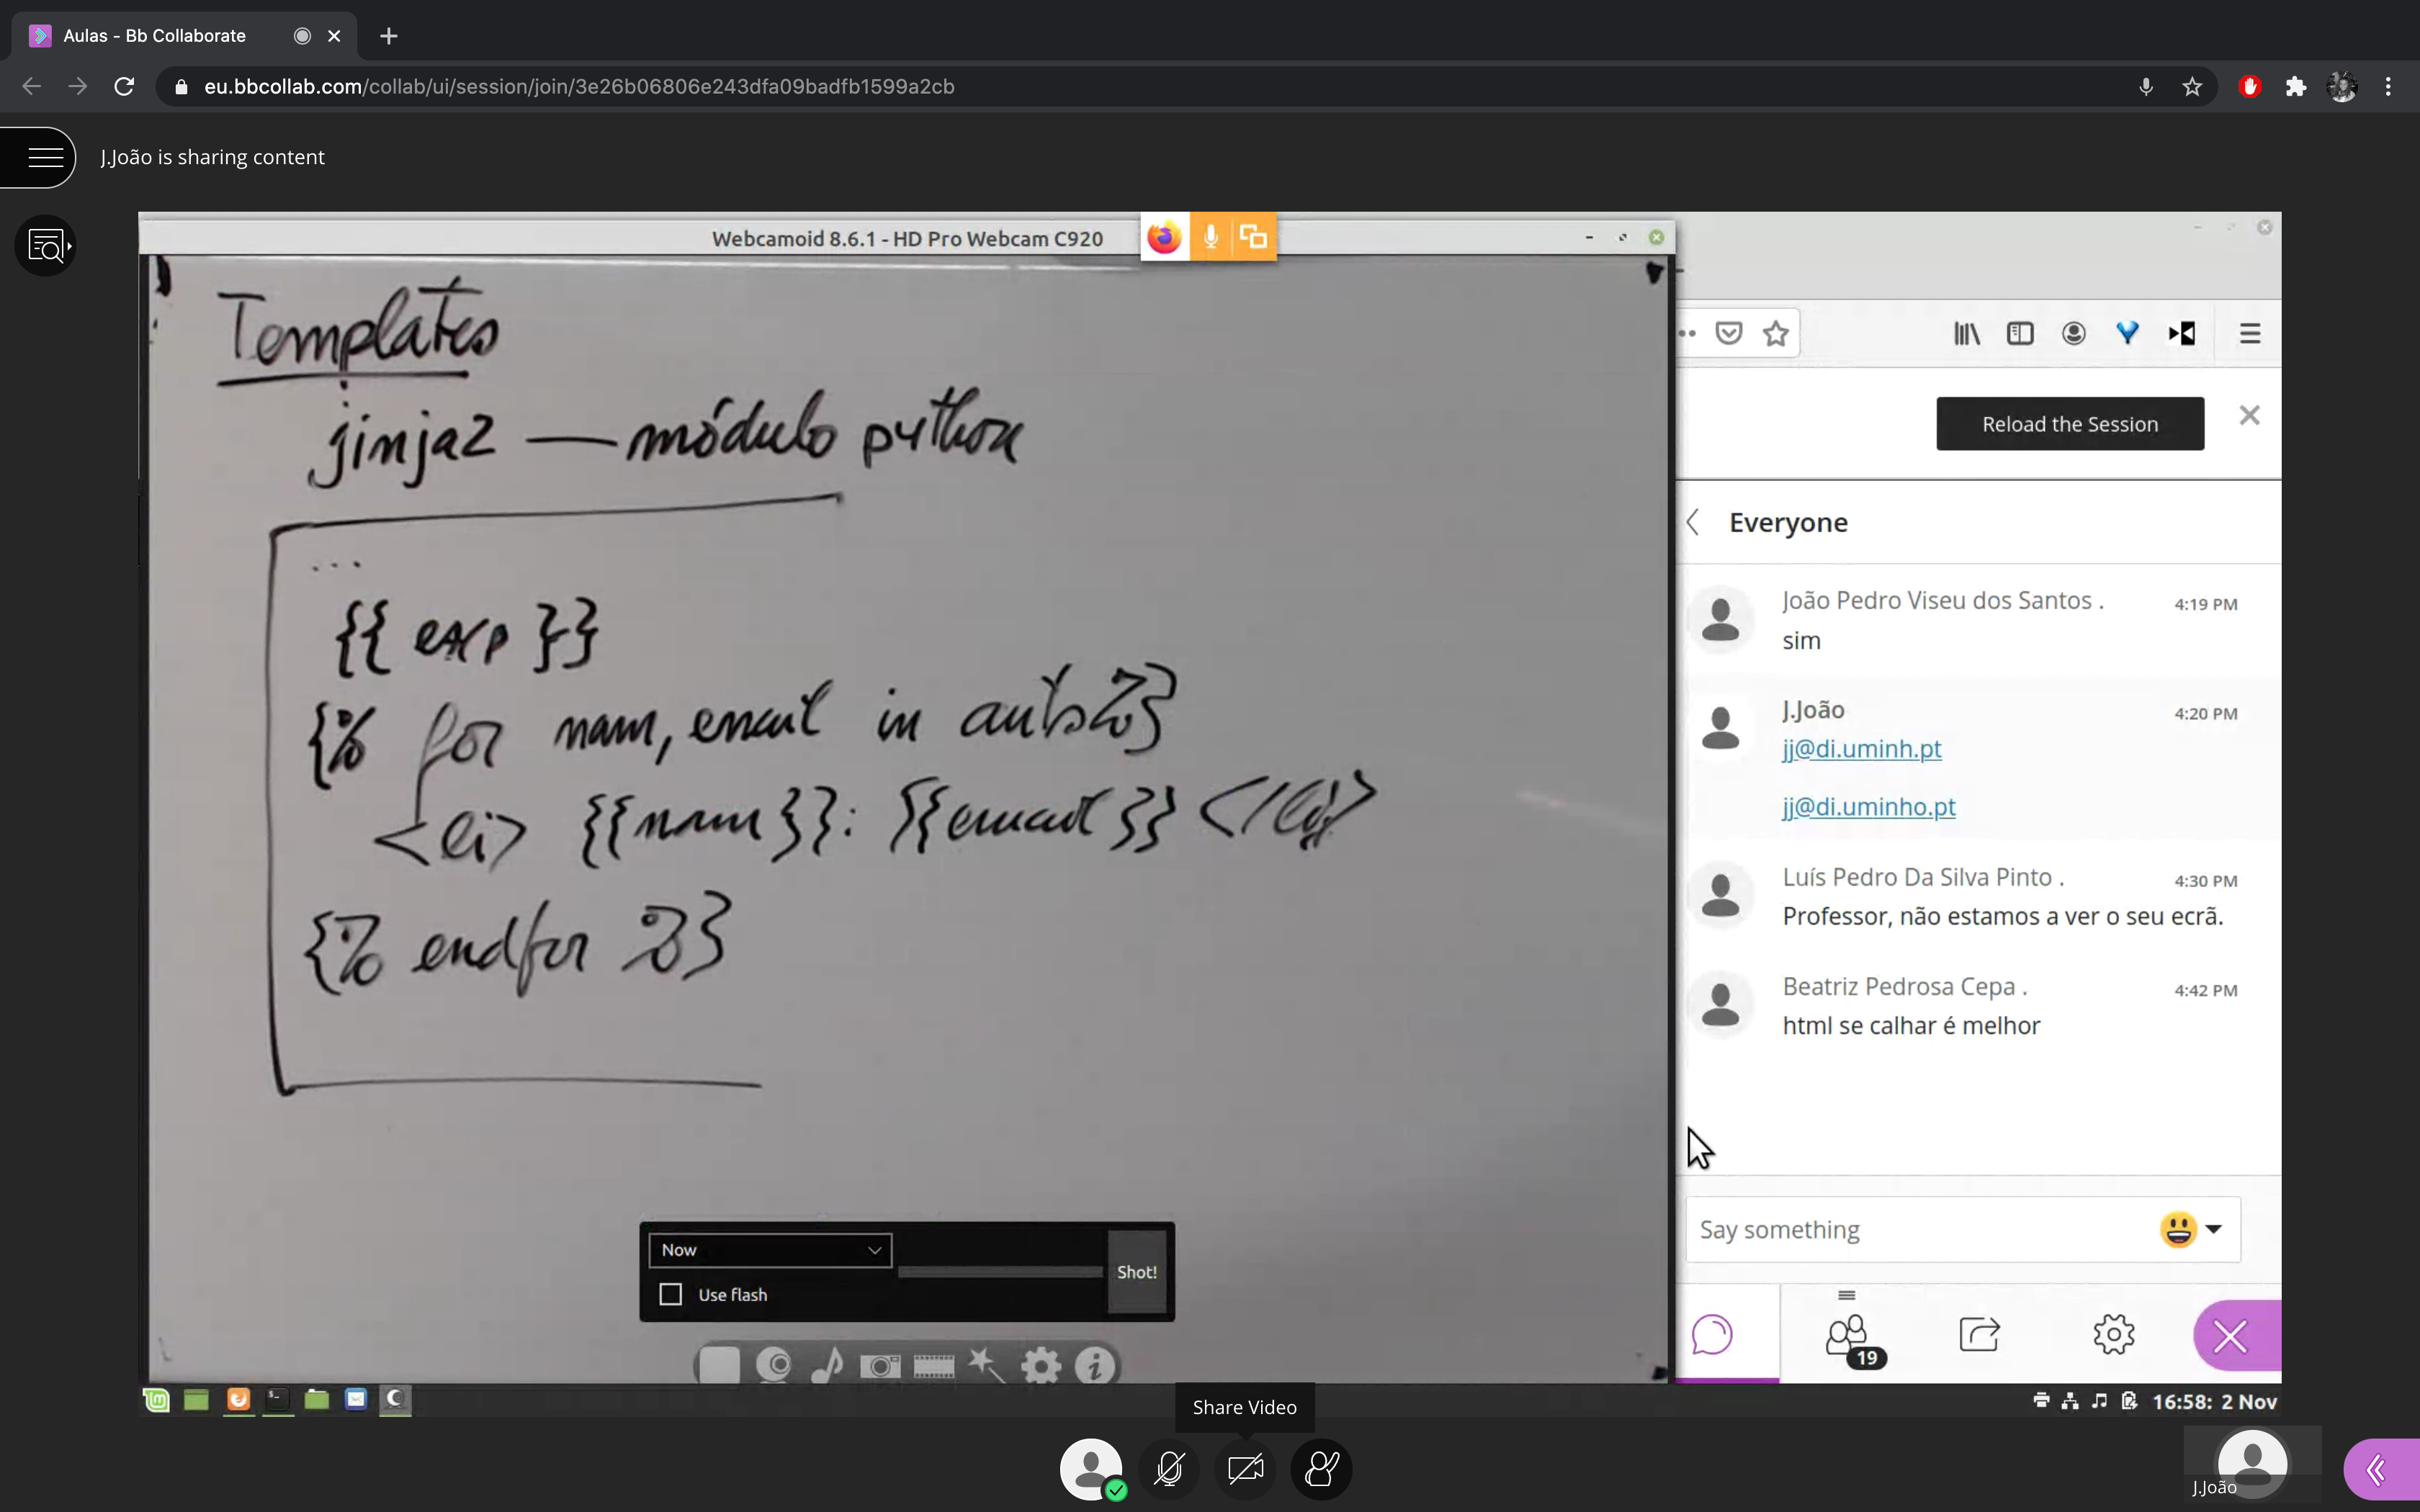 Aulas - Bb Collaborate
eu.bbcollab.com/collab/ui/session/join/3e26b06806e243dfa09badfb1599a2cb
J.João is sharing content
Webcamoid 8.6.1 - HD Pro Webcam C920
Templates
jinja2 — módulo python
...
{{ exp }}
{% for nam, email in auts %}
<li> {{nam}}: {{email}} </li>
{% endfor %}
Now
Use flash
Shot!
Reload the Session
Everyone
João Pedro Viseu dos Santos . 4:19 PM
sim
J.João 4:20 PM
jj@di.uminh.pt
jj@di.uminho.pt
Luís Pedro Da Silva Pinto . 4:30 PM
Professor, não estamos a ver o seu ecrã.
Beatriz Pedrosa Cepa . 4:42 PM
html se calhar é melhor
Say something
19
16:58: 2 Nov
Share Video
J.João